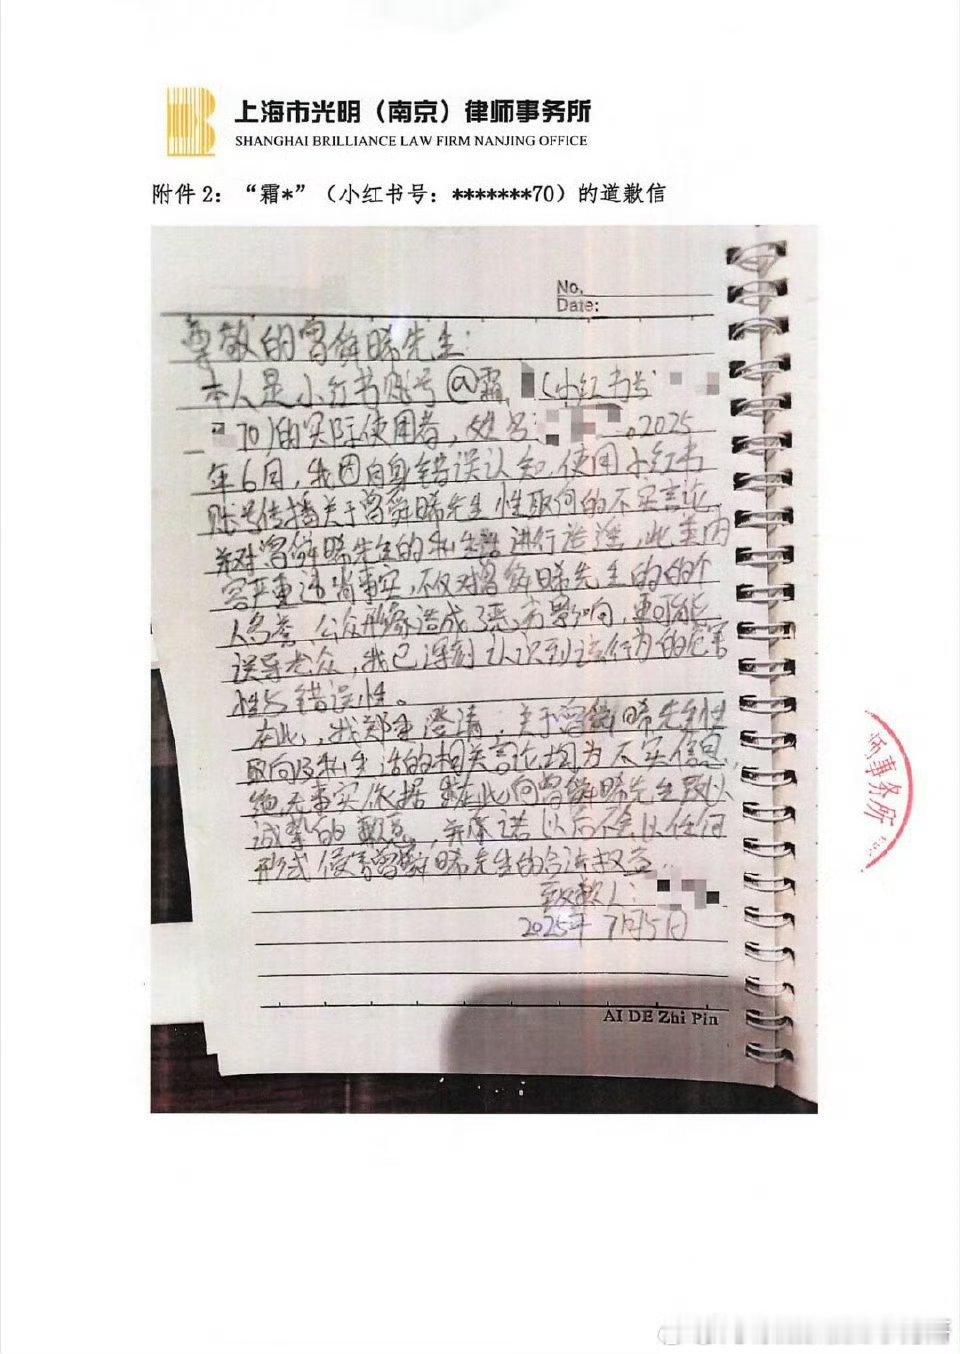 上海市光明（南京）律师事务所
SHANGHAI BRILLIANCE LAW FIRM NANJING OFFICE
附件 2：“霜*”（小红书号：*******70）的道歉信
No.
Date:
尊敬的曾舜晞先生：
本人是小红书账号@霜（小红书号
70）的实际使用者，姓名：。2025
年6月，我因自身错误认知，使用小红书
账号传播关于曾舜晞先生性取向的不实言论，
并对曾舜晞先生的私生活进行造谣，此类内
容严重违背事实，不仅对曾舜晞先生的的个
人名誉、公众形象造成恶劣影响，更可能
误导公众，我已深刻认识到该行为的危害
性与错误性。
在此，我郑重澄清：关于曾舜晞先生性
取向及私生活的相关言论均为不实信息，
绝无事实依据。我在此向曾舜晞先生致以
诚挚的歉意，并承诺以后不会以任何
形式侵害曾舜晞先生的合法权益。
致歉人：
2025年7月5日
AI DE Zhi Pin
师事务所